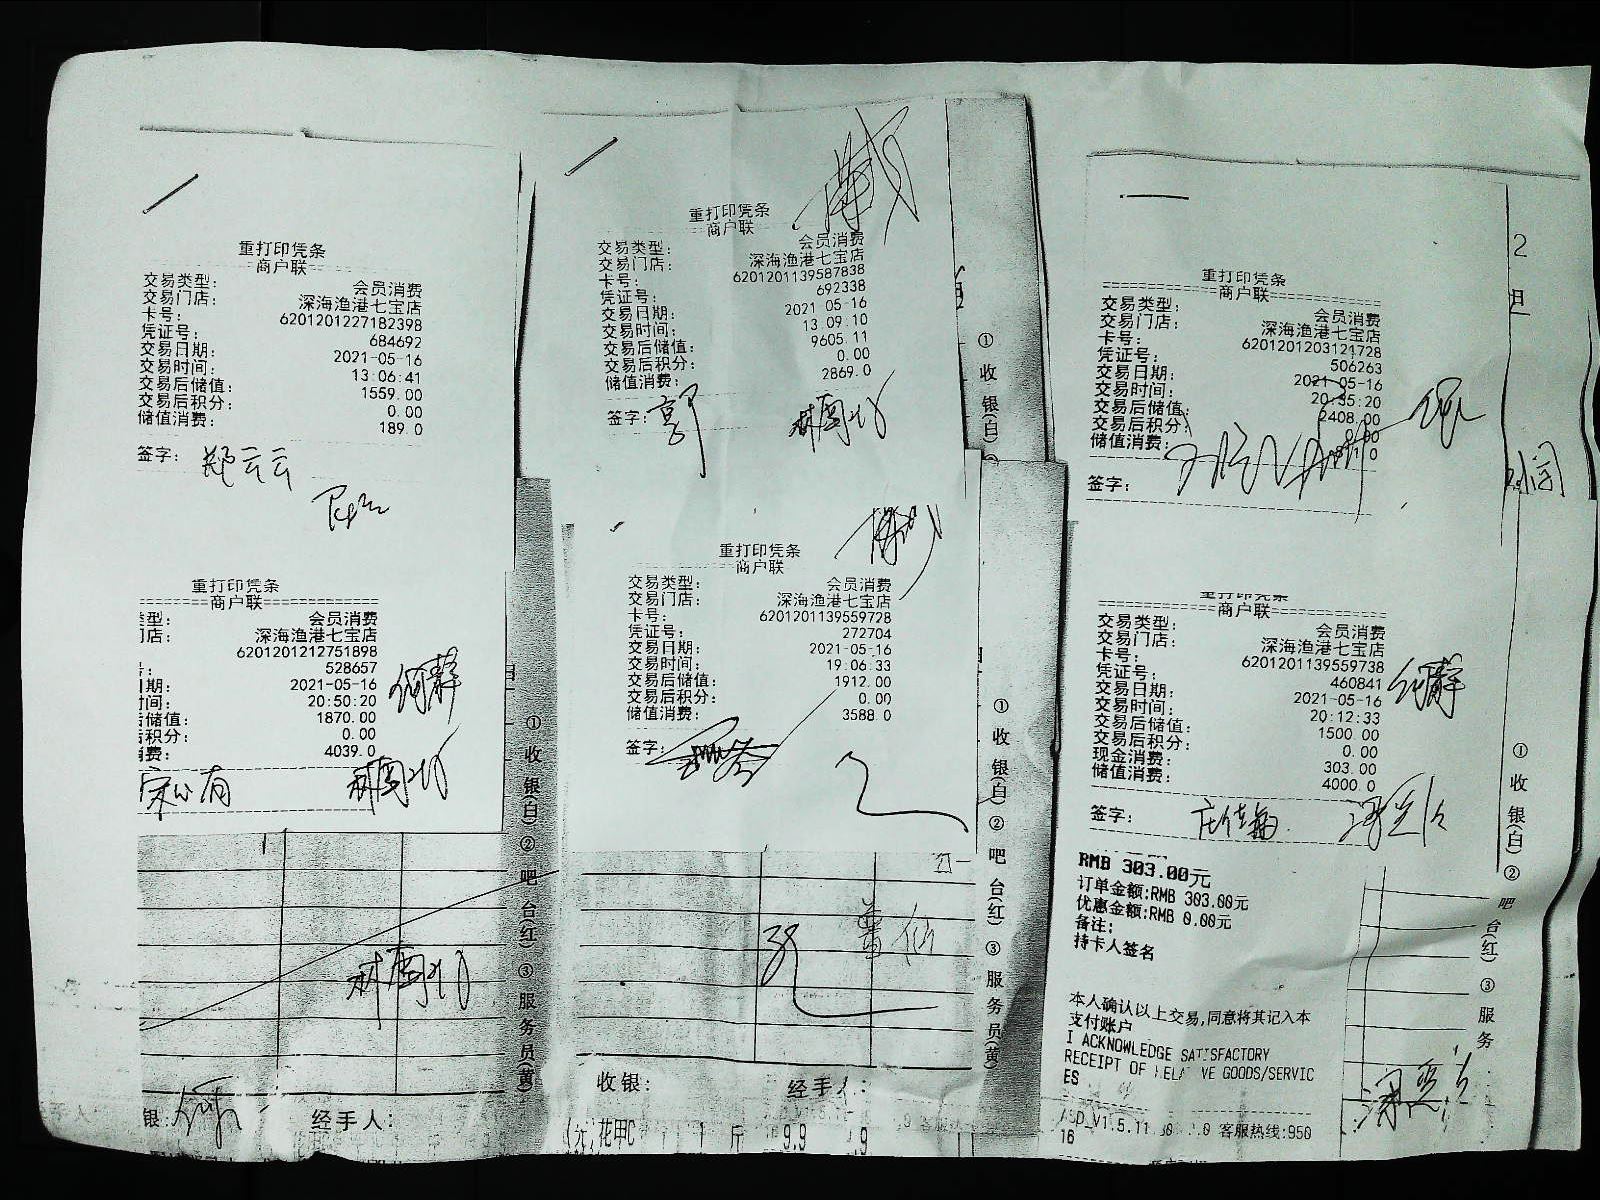 重打印凭条
商户联
交易类型: 会员消费
交易门店: 深海渔港七宝店
卡号: 6201201227182398
凭证号: 684692
交易日期: 2021-05-16
交易时间: 13:06:41
交易后储值: 1559.00
交易后积分: 0.00
储值消费: 189.0
签字: 郑云云
重打印凭条
商户联
型: 会员消费
门店: 深海渔港七宝店
6201201212751898
号: 528657
期: 2021-05-16
时间: 20:50:20
后储值: 1870.00
后积分: 0.00
消费: 4039.0
何静
银:
经手人:
①收银(白)②吧台(红)③服务员(黄)
重打印凭条
商户联
交易类型: 会员消费
交易门店: 深海渔港七宝店
卡号: 6201201139587838
凭证号: 692338
交易日期: 2021-05-16
交易时间: 13:09:10
交易后储值: 9605.11
交易后积分: 0.00
储值消费: 2869.0
签字: 郭
①收银(白)
重打印凭条
商户联
交易类型: 会员消费
交易门店: 深海渔港七宝店
卡号: 6201201139559728
凭证号: 272704
交易日期: 2021-05-16
交易时间: 19:06:33
交易后储值: 1912.00
交易后积分: 0.00
储值消费: 3588.0
签字:
①收银(白)②吧台(红)③服务员(黄)
收银:
经手人:
花甲C 1 斤 9.9 9.9
重打印凭条
商户联
交易类型: 会员消费
交易门店: 深海渔港七宝店
卡号: 6201201203121728
凭证号: 506263
交易日期: 2021-05-16
交易时间: 20:35:20
交易后储值: 2408.00
交易后积分: 0.00
储值消费:
签字:
重打印凭条
商户联
交易类型: 会员消费
交易门店: 深海渔港七宝店
卡号: 6201201139559738
凭证号: 460841
交易日期: 2021-05-16
交易时间: 20:12:33
交易后储值: 1500.00
交易后积分: 0.00
现金消费: 303.00
储值消费: 4000.0
何静
签字: 庄佳敏
RMB 303.00元
订单金额:RMB 303.00元
优惠金额:RMB 0.00元
备注:
持卡人签名
本人确认以上交易,同意将其记入本
支付账户
I ACKNOWLEDGE SATISFACTORY
RECEIPT OF RELATIVE GOODS/SERVIC
ES
客服热线:950
16
①收银(白)②吧台(红)③服务